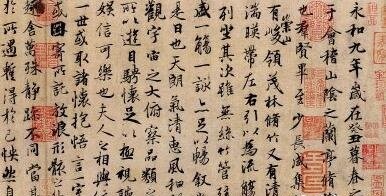 永和九年歲在癸丑暮春之
于會稽山陰之蘭亭脩
也羣賢畢至少長咸集
有崇山峻領茂林脩竹又有清
湍暎帶左右引以為流觴
列坐其次雖無絲竹管弦
盛一觴一詠亦足以暢敘
是日也天朗氣清惠風和
觀宇宙之大俯察品類
所以遊目騁懷足以極視
娛信可樂也夫人之相與
一世或取諸懷抱悟言一室
或因寄所託放浪形骸之
趣舍萬殊靜躁不同當其
於所遇暫得於己怏然自